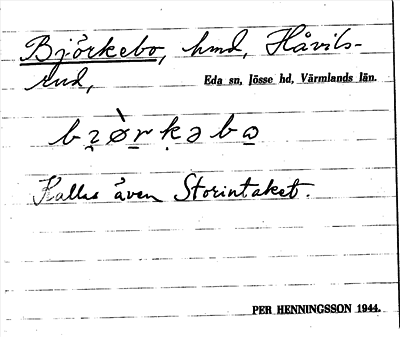 Björkebo, hmd, Håvils-
rud,
Eda sn, Jösse hd, Värmlands län.
Kallas även Storintaket.
PER HENNINGSSON 1944.